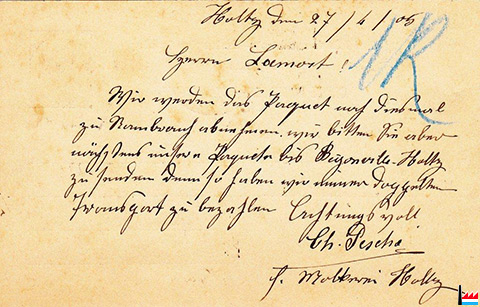 Holtz den 27/4/05
1R
Herrn Lamort!
Wir werden das Paquet noch diesmal
zu Rambrouch abnehmen, wir bitten Sie aber
nächstens unsere Paquete bis Perl Holtz
zu senden denn so haben wir immer doppelten
Transport zu bezahlen Achtungsvoll
Ch. Pescha
f. Molkerei Holtz